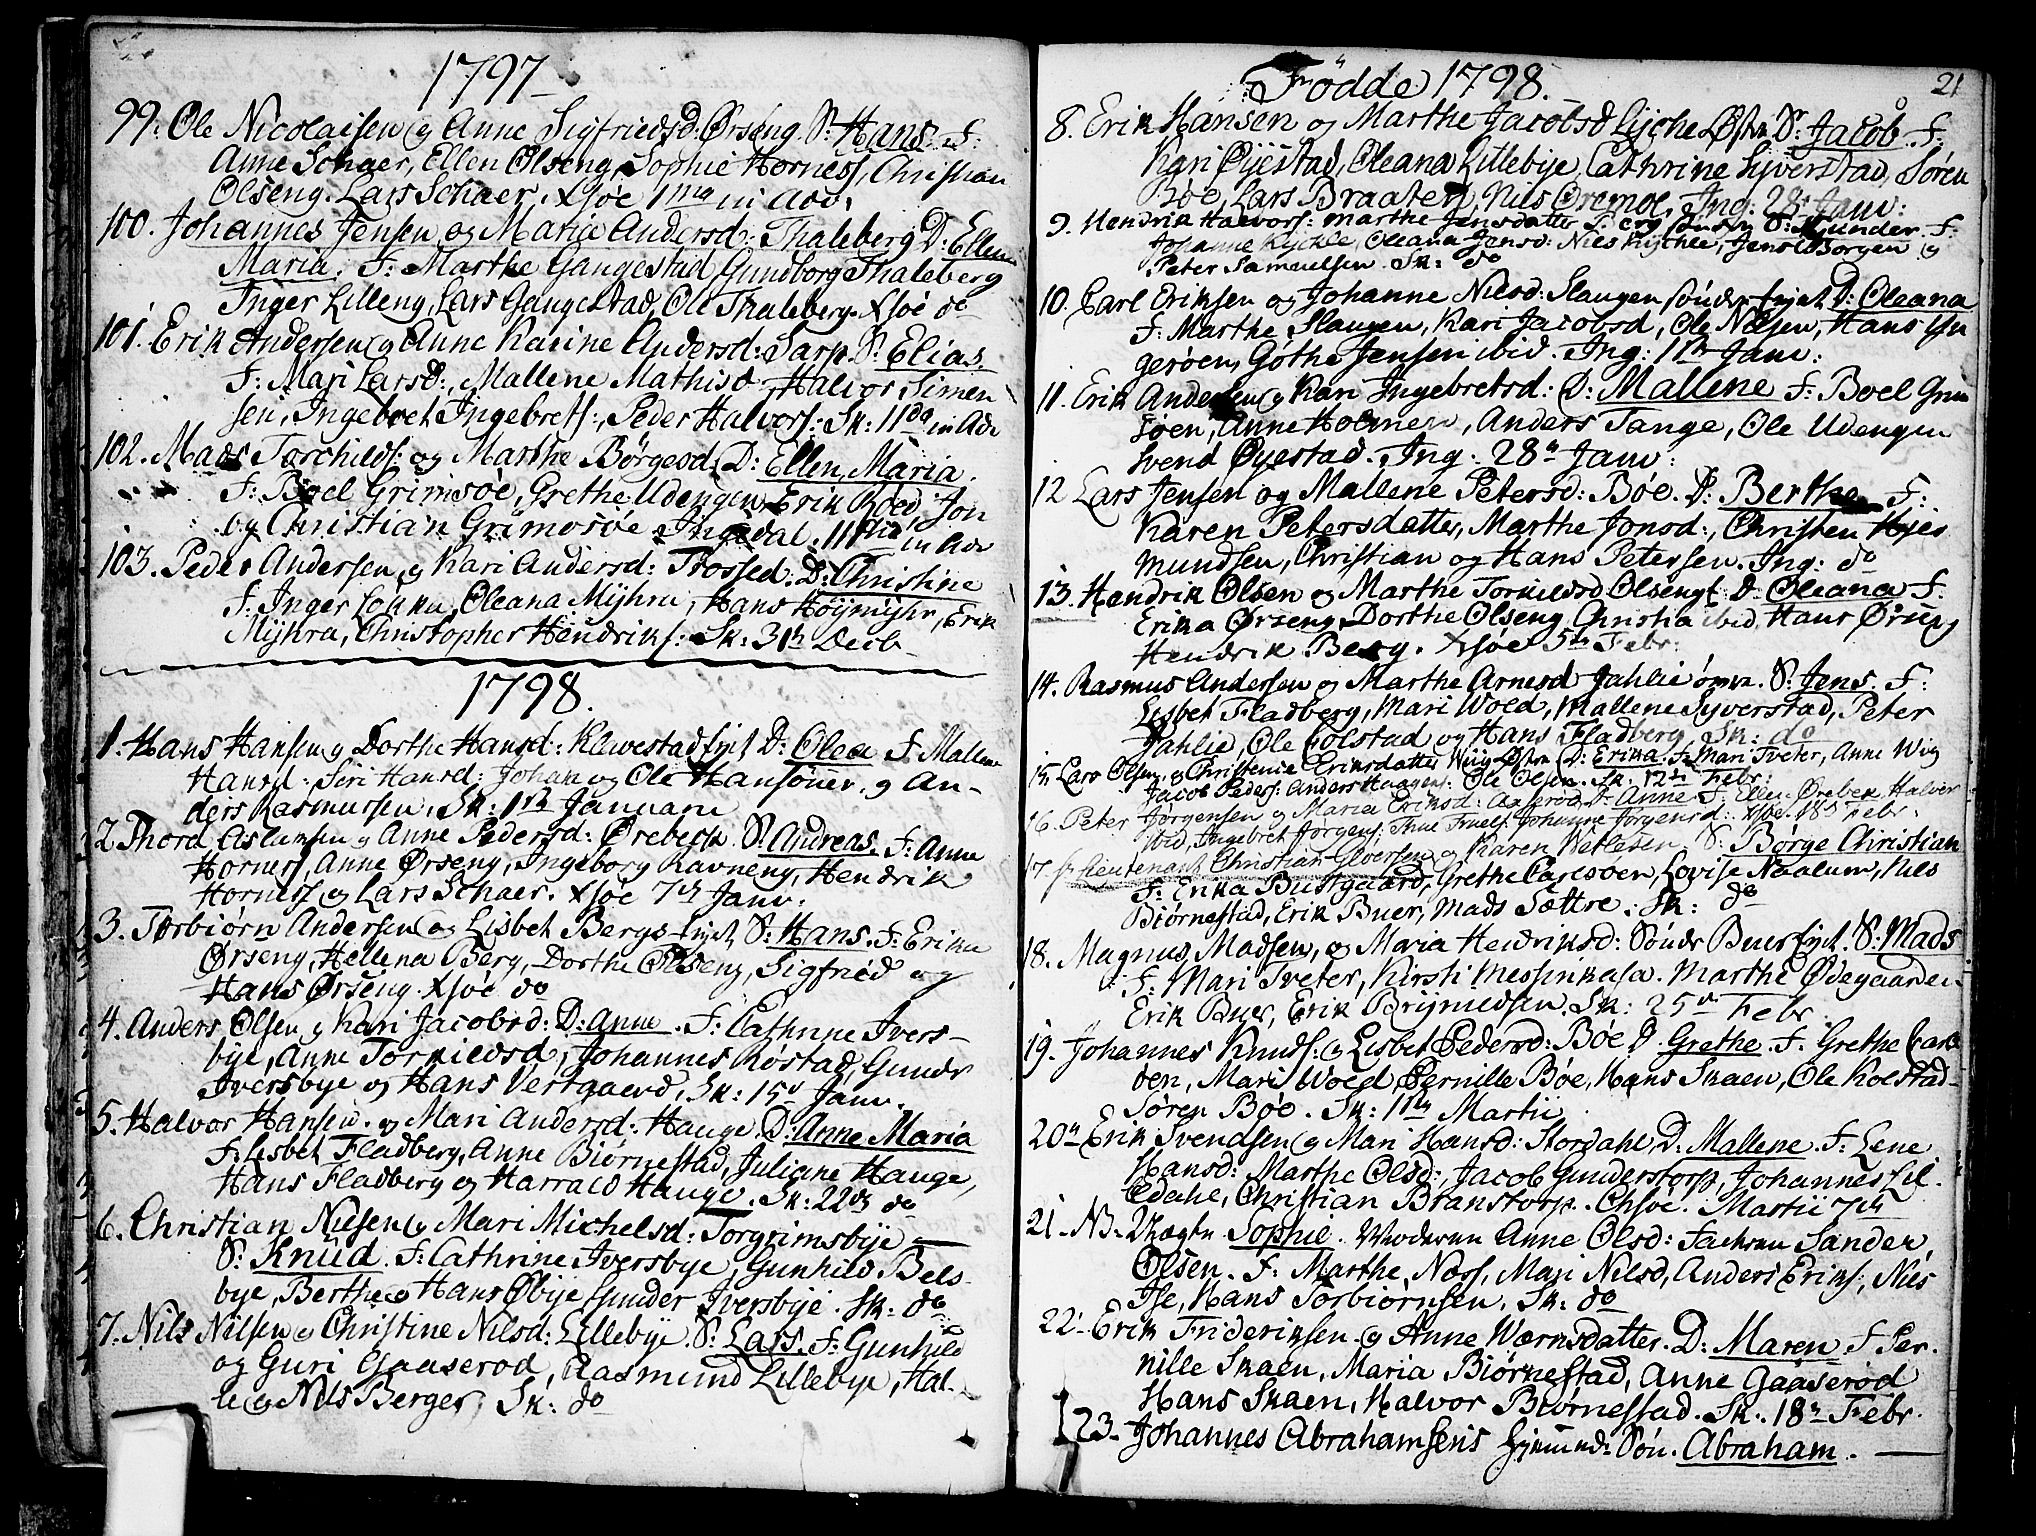 1797
99. Ole Nicolaisen og Anne Sigfriedsd: Ørseng. S: Hans. F:
Anne Schaer, Ellen Olseng, Sophie Horness, Christian
Olseng. Lars Schaer. Xsöe 1ma in Adv.
100. Johannes Jensen og Maria Andersd: Thaleberg D: Ellen
Maria. F: Marthe Gangestad, Gundborg Thaleberg
Inger Lilleng, Lars Gangestad, Ole Thaleberg. Xsöe do
101. Erik Andersen og Anne Karine Andersd: Sarp. S: Elias.
F: Mari Larsd:, Mallene Mathisd, Halvor Simen
sen, Ingebret Ingebrets:, Peder Halvors: Sk: 11da in Adv
102. Mads Torchilds: og Marthe Børgesd. D: Ellen Maria.
F: Boel Grimsøe, Grethe Udengen, Erik Roed, Jon
og Christian Grimsøe. Ingedal. 111tia in Adv
103. Peder Andersen og Kari Andersd: Trossed. D: Christine
F: Inger Lokku, Oleana Mijhra, Hans Høijmijhr, Erik
Mijhra, Christopher Hendriks: Sk: 31h Decb
1798.
1. Hans Hansen og Dorthe Hansd: Klavestad D: Olea F: Mallene
Hansd: Siri Hansd: Johan og Ole Hansöner, og An-
ders Rasmussen. Sk: 1ste Januarii
2. Thord Aslaksen og Anne Pedersd: Ørebeck. S: Andreas. F: Anne
Horness, Anne Ørseng, Ingeborg Ravneng, Hendrik
Horness og Lars Schaer. Xsöe 7de Janv.
3. Torbiørn Andersen og Lisbet Bergs S: Hans. F: Erika
Ørseng, Hellena Berg, Dorthe Olseng, Sigfried og
Hans Ørseng. Xsöe do
4. Anders Olsen og Kari Jacobsd: D: Anne. F: Cathrine Ivers-
bye, Anne Torkildsd, Johannes Rostad, Gunder
Iversbye og Hans Vestgaard. Sk: 15de Janv.
5. Halvor Hansen og Mari Andersd: Hauge. D: Anne Maria
F: Lisbet Fladberg, Anne Biørnestad, Juliane Hauge,
Hans Fladberg og Harrald Hauge. Sk: 22de do
6. Christian Nilsen og Mari Michelsd: Torgrimsbye
S: Knüd. F: Cathrine Iversbye, Gunhild Bels-
bye, Berthe og Hans Øbye, Gunder Iversbye. Sk: do
7. Nils Nilsen og Christine Nilsd: Lillebye. S: Lars. F: Gunhild
og Guri Gaaserød, Aasmund Lillebye, Hal-
le og Nils Berger. Sk: do
21
Fødde 1798.
8. Erik Hansen og Marthe Jacobsd Lyche Østre S: Jacob. F:
Kari Øyestad, Oleana Lillebye, Cathrine Syverstad, Søren
Boe, Lars Braaten, Nils Oremoe. Ing: 28de Janv:
9. Hendrik Halvors: Marthe Jensdatter S: Gunder. F:
Johanne Kykle, Oleana Jensd: Nils Kykle, Jens Borgen og
Peter Samuelsen. Sk: do
10. Carl Eriksen og Johanne Nilsd: Slaugen sönder D: Oleana
F: Marthe Slaugen, Kari Jacobsd, Ole Nilsen, Hans Yn
gerøen, Gøthe Jensen ibid. Ing: 11te Janv:
11. Erik Andersen og Kari Ingebretsd: D: Mallene F: Boel Grim
søen, Anne Holmen, Anders Tange, Ole Udengen
Svend Øyestad. Ing. 28de Janv:
12 Lars Jensen og Mallene Petersd: Bøe. D: Berthe. F:
Karen Petersdatter, Marthe Jonsd:, Christen Hjes
mundsen, Christian og Hans Petersen. Ing: do
13. Hendrik Olsen og Marthe Torkildsd Olseng D: Oleana F:
Erika Ørseng, Dorthe Olseng, Christia ibid, Hans Ørseng
Hendrik Berg. Xsöe 5te Febr:
14. Rasmus Andersen og Marthe Arnesd Jahlie S: Jens. F:
Lisbet Fladberg, Mari Wold, Mallene Syverstad, Peter
Jahlie, Ole Colstad og Hans Fladberg. Sk: do
15. Lars Olsen og Christense Eriksdatter Wiig Østre D: Erika. F: Mari Tveter, Anne Wiig
Jacob Peders: Anders Haagens: Ole Olsen. Sk: 12te Febr:
16. Peter Jørgensen og Maria Eriksd: Aaserød. D: Anne F: Ellen Ørebek, Halvor
ibid, Ingebret Jørgens: Johanne Jørgensd: Xsöe. 18de Febr.
17. Lieutenant Christian Elversen og Karen Netlesen S: Børge Christian
F: Erika Bustgaard, Grethe Carlsøen, Lovise Naalum, Nils
Biørnestad, Erik Buer, Mads Sættre. Sk: do
18. Magnus Madsen, og Maria Hendriksd: Söndr Buer S: Mads
F: Mari Tveter, Kirsti Marthe Ødegaarden
Erik Buer, Erik Brijnildsen. Sk: 25de Febr.
19. Johannes Knuds: og Lisbet Pedersd: Bøe D. Grethe. F: Grethe Carls
øen, Mari Wold, Pernille Bøe, Hans Skaen, Ole Kolstad
Søren Bøe. Sk: 11te Martii
20de Erik Svendsen og Mari Hansd: Stordahl. D: Mallene. F: Lene
Hansd: Marthe Olsd:, Jacob Gunderstorp, Johannes Lil-
ledahl, Christian Branstorp. Chsöe. Martii 7de
21. NB. Uægte Sophie. Moderen Anne Olsd: Faderen Sander
Olsen. F: Marthe Næss, Mari Nilsd, Anders Eriks:, Nils
Ise, Hans Torbiørnsen. Sk: do
22. Erik Frideriksen og Anne Wærnsdatter. D: Maren F: Per-
nille Skaen, Maria Biørnestad, Anne Gaaserød
Hans Skaen, Halvor Biørnestad. Sk. 18de Febr.
23. Johannes Abrahamsens Søn. Abraham.